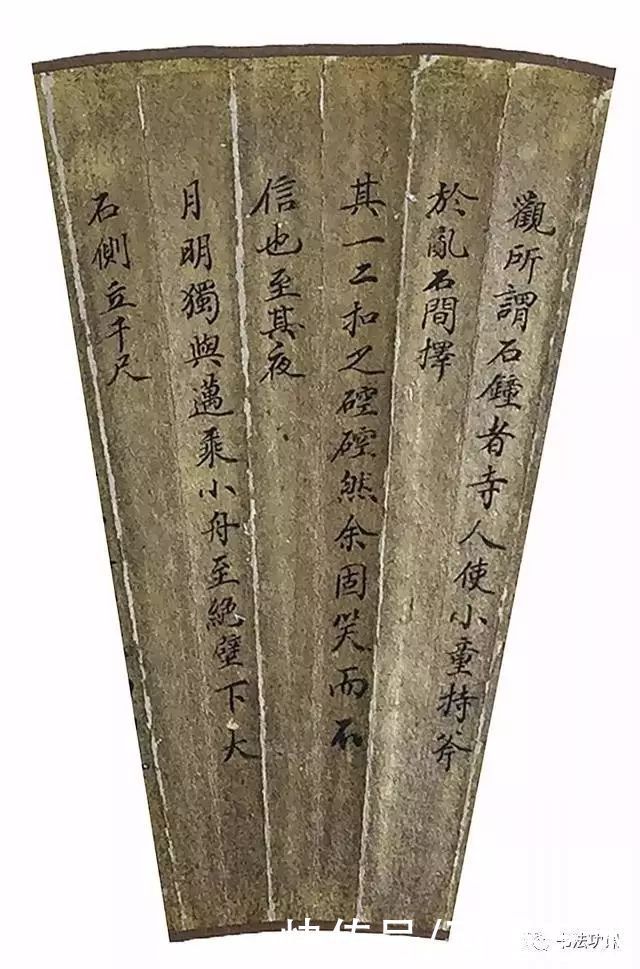 觀所謂石鐘者寺人使小童持斧
於亂石間擇
其一二扣之硿硿然余固笑而不
信也至其夜
月明獨與邁乘小舟至絕壁下大
石側立千尺
书法功课